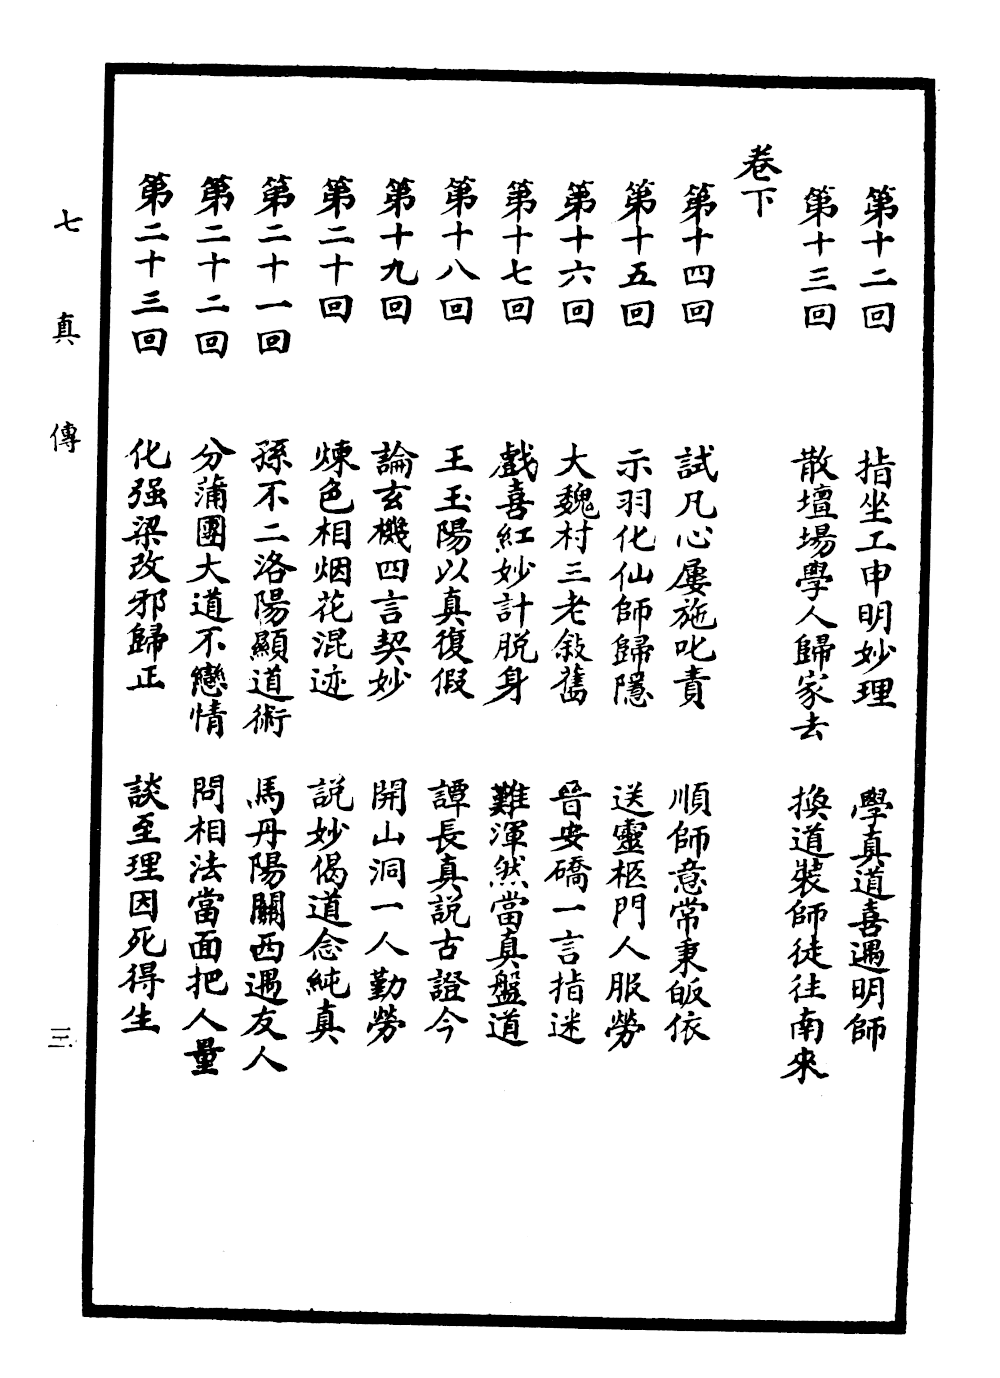 第十二回 指坐工申明妙理 學真道喜遇明師
第十三回 散壇場學人歸家去 換道裝師徒往南來
卷下
第十四回 試凡心屢施叱責 順師意常秉皈依
第十五回 示羽化仙師歸隱 送靈柩門人服勞
第十六回 大魏村三老敍舊 晉安橋一言指迷
第十七回 戲喜紅妙計脱身 難渾然當真盤道
第十八回 王玉陽以真復假 譚長真説古證今
第十九回 論玄機四言契妙 開山洞一人勤勞
第二十回 煉色相烟花混迹 説妙偈道念純真
第二十一回 孫不二洛陽顯道術 馬丹陽關西遇友人
第二十二回 分蒲團大道不戀情 問相法當面把人量
第二十三回 化强梁改邪歸正 談至理因死得生
七真傳
三